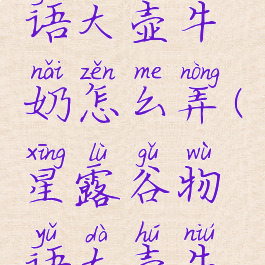 语大壶牛
nǎi zěn me nòng
奶怎么弄(
xīng lù gǔ wù
星露谷物
yǔ dà hú niú
语大壶牛